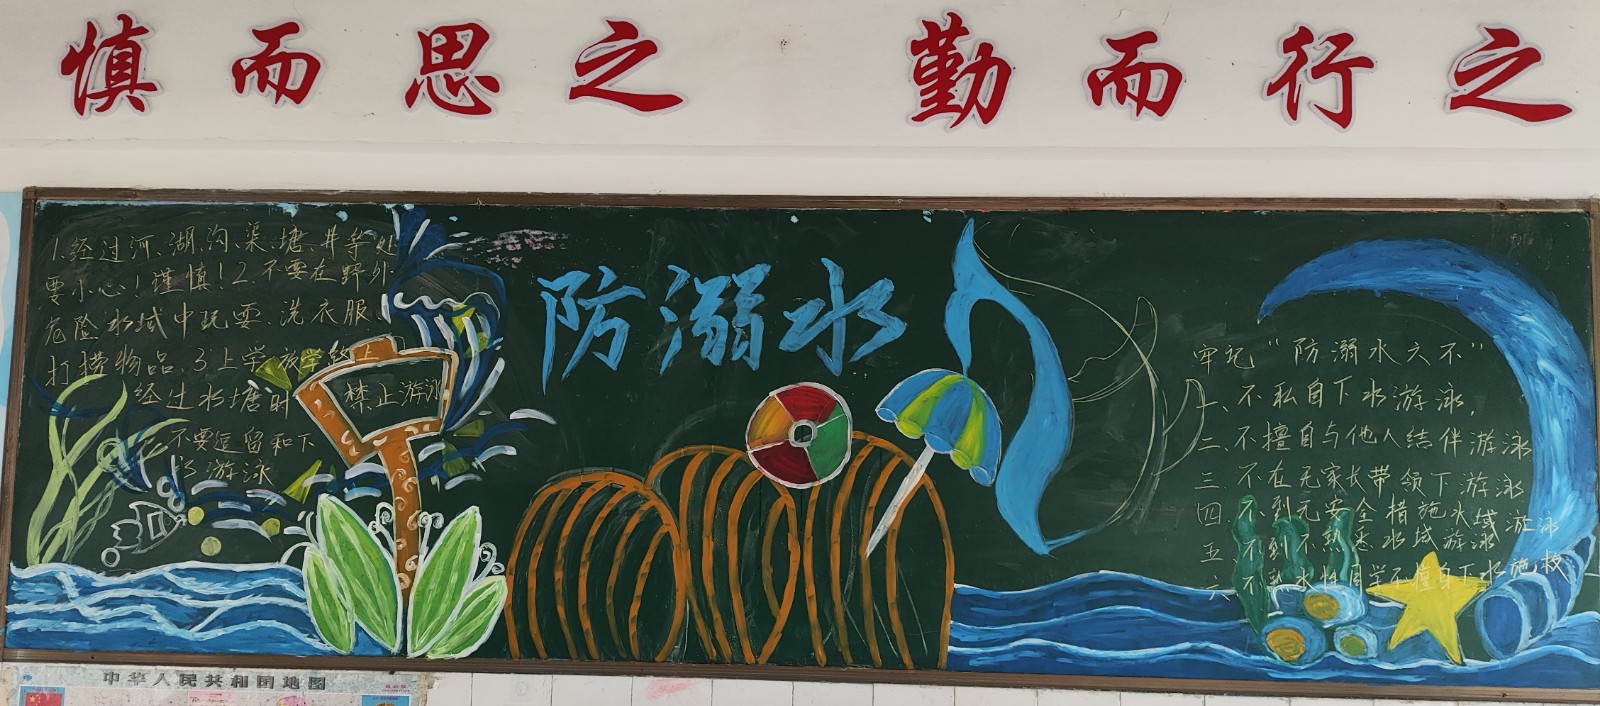 慎而思之 勤而行之
防溺水
1.经过河、湖、沟、渠、塘、井等处
要小心！谨慎！2.不要在野外
危险水域中玩耍、洗衣服、
打捞物品。3.上学放学路上
经过水塘时
不要逗留和下
水游泳
禁止游泳
牢记“防溺水六不”
一、不私自下水游泳，
二、不擅自与他人结伴游泳
三、不在无家长带领下游泳
四、不到无安全措施水域游泳
五、不到不熟悉水域游泳
六、不熟水性同学不擅自下水施救
中华人民共和国地图